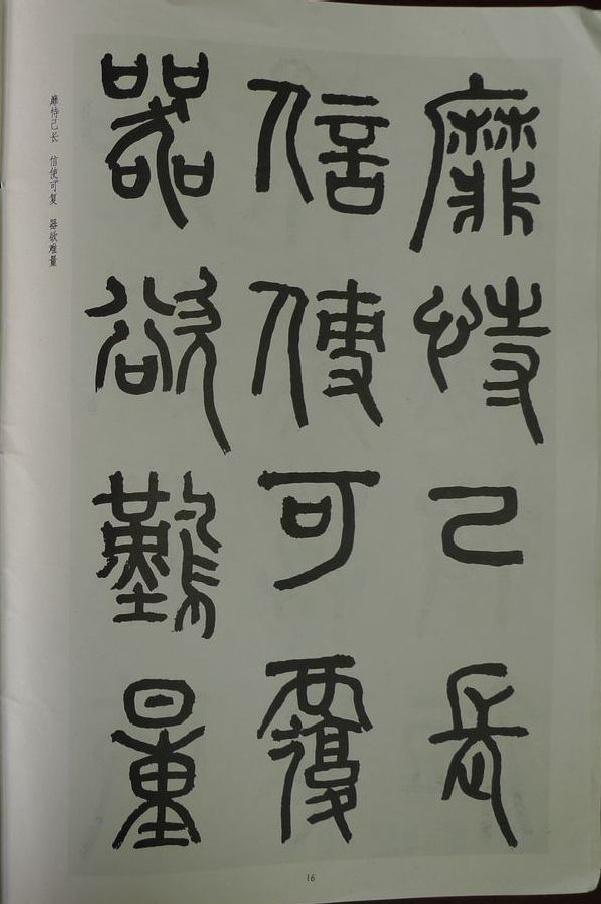 靡恃己長
信使可覆
器欲難量
靡恃己长 信使可复 器欲难量
16